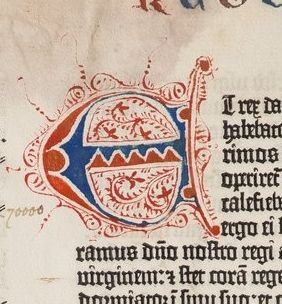 ET rex da
habebat
rimos
operiret
calefieb
ergo ei
ramus dño nostro regi
virginem: ⁊ stet corā rege